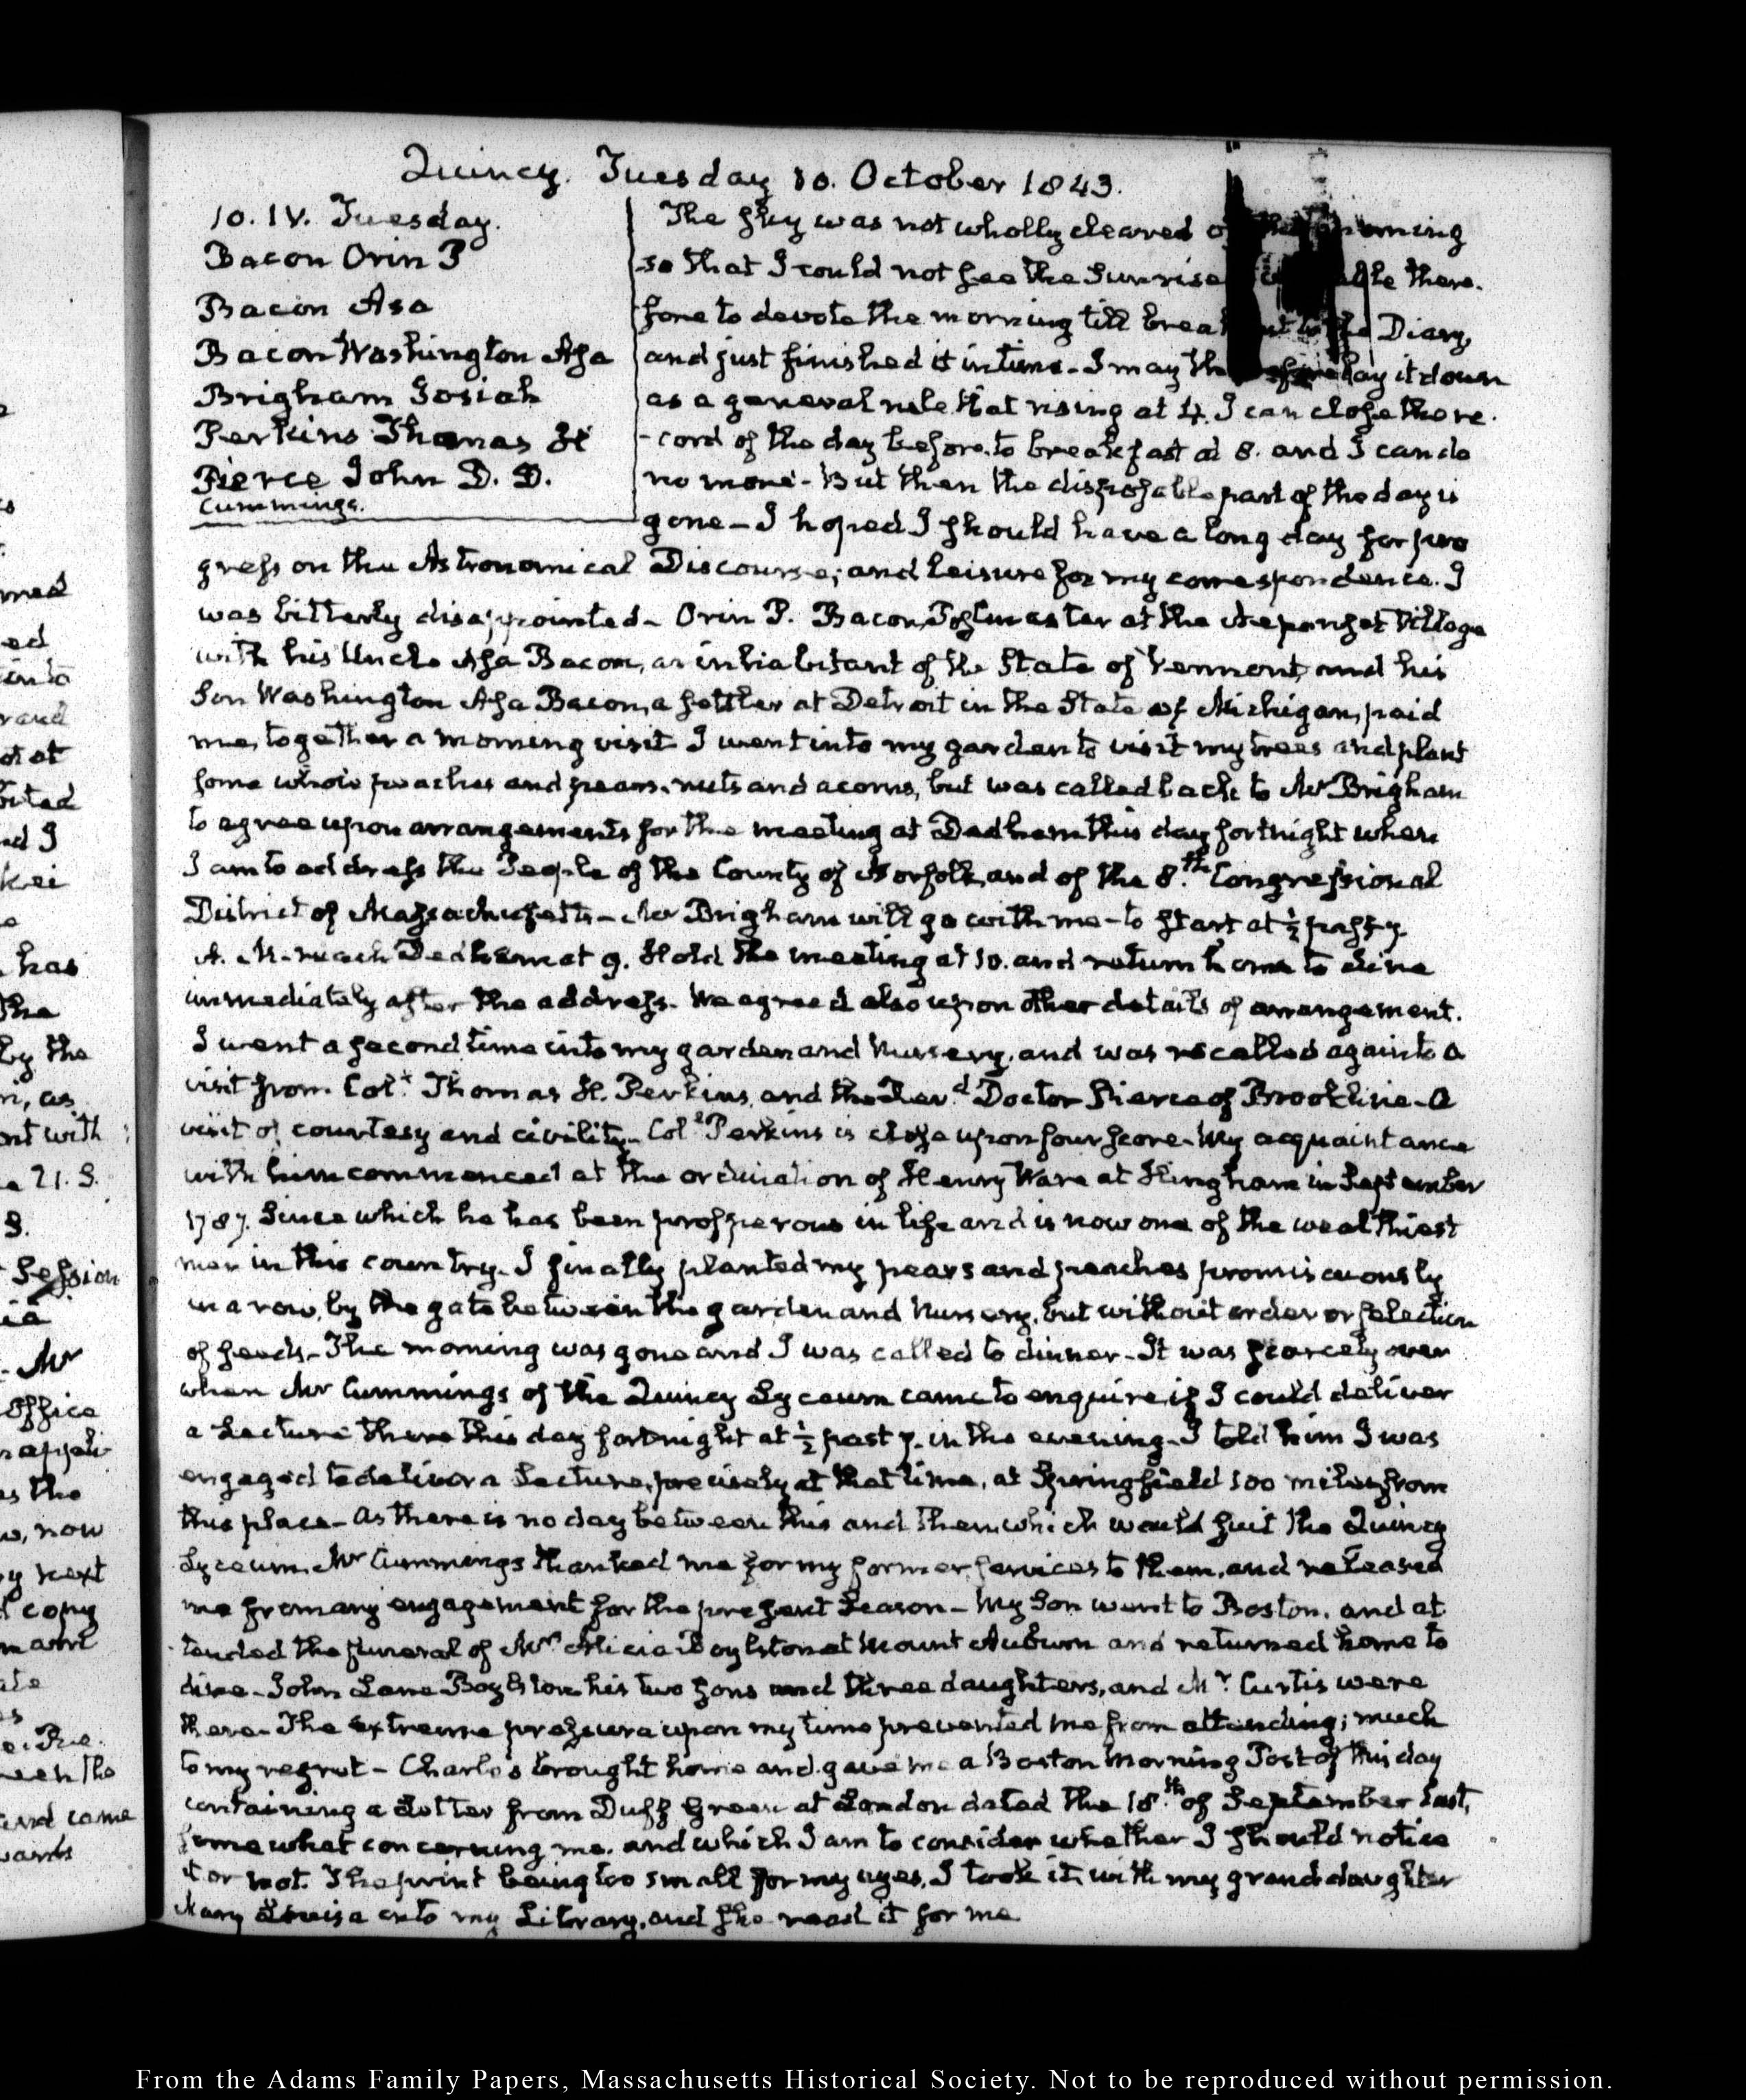 Quincy. Tuesday 10. October 1843.
10. IV. Tuesday.
Bacon Orin P
Bacon Asa
Bacon Washington Asa
Brigham Josiah
Perkins Thomas H
Pierce John D. D.
Cummings.
The sky was not wholly cleared of the morning
so that I could not see the Sunrise able there-
fore to devote the morning till breakfast to the Diary,
and just finished it in time - I may therefore lay it down
as a general rule that rising at 4. I can close the re-
-cord of the day before, to breakfast at 8. and I can do
no more - But then the disposable part of the day is
gone - I hoped I should have a long day for pro
gress on the Astronomical Discourse; and leisure for my correspondence. I
was bitterly disappointed - Orin P. Bacon, Postmaster at the Neponset Village
with his Uncle Asa Bacon, an inhabitant of the State of Vermont, and his
Son Washington Asa Bacon, a settler at Detroit in the State of Michigan, paid
me, together a morning visit I went into my garden to visit my trees and plant
some whole peaches and pears, nuts and acorns, but was called back to Mr Brigham
to agree upon arrangements for the meeting at Dedham this day fortnight when
I am to address the People of the County of Norfolk, and of the 8.th Congressional
District of Massachusetts - Mr Brigham will go with me - to start at ½ past 7.
A. M. reach Dedham at 9. Hold the meeting at 10. and return home to dine
immediately after the address. We agreed also upon other details of arrangement.
I went a second time into my garden and Nursery, and was recalled again to a
visit from Col.l Thomas H. Perkins, and the Rev.d Doctor Pierce of Brookline - a
visit of courtesy and civility - Col.l Perkins is close upon four score - My acquaintance
with him commenced at the ordination of Henry Ware at Hingham in September
1787. Since which he has been prosperous in life and is now one of the wealthiest
men in this country. I finally planted my pears and peaches promiscuously
in a row, by the gate between the garden and Nursery, but without order or selection
of seeds - The morning was gone and I was called to dinner - It was scarcely over
when Mr Cummings of the Quincy Lyceum came to enquire if I could deliver
a Lecture there this day fortnight at ½ past 7. in the evening - I told him I was
engaged to deliver a Lecture, precisely at that time, at Springfield 100 miles from
this place - As there is no day between this and then which would suit the Quincy
Lyceum, Mr Cummings thanked me for my former services to them, and released
me from any engagement for the present Season - My Son went to Boston, and at
tended the funeral of Mrs Alicia Boylston at Mount Auburn and returned home to
dine - John Lane Boylston his two sons and three daughters, and Mr. Curtis were
there - The extreme pressure upon my time prevented me from attending; much
to my regret - Charles brought home and gave me a Boston Morning Post of this day
containing a Letter from Duff Green at London dated the 18.th of September last,
somewhat concerning me. and which I am to consider whether I should notice
it or not. The print being too small for my eyes, I took it, with my granddaughter
Mary Louisa into my Library, and she read it for me
From the Adams Family Papers, Massachusetts Historical Society. Not to be reproduced without permission.